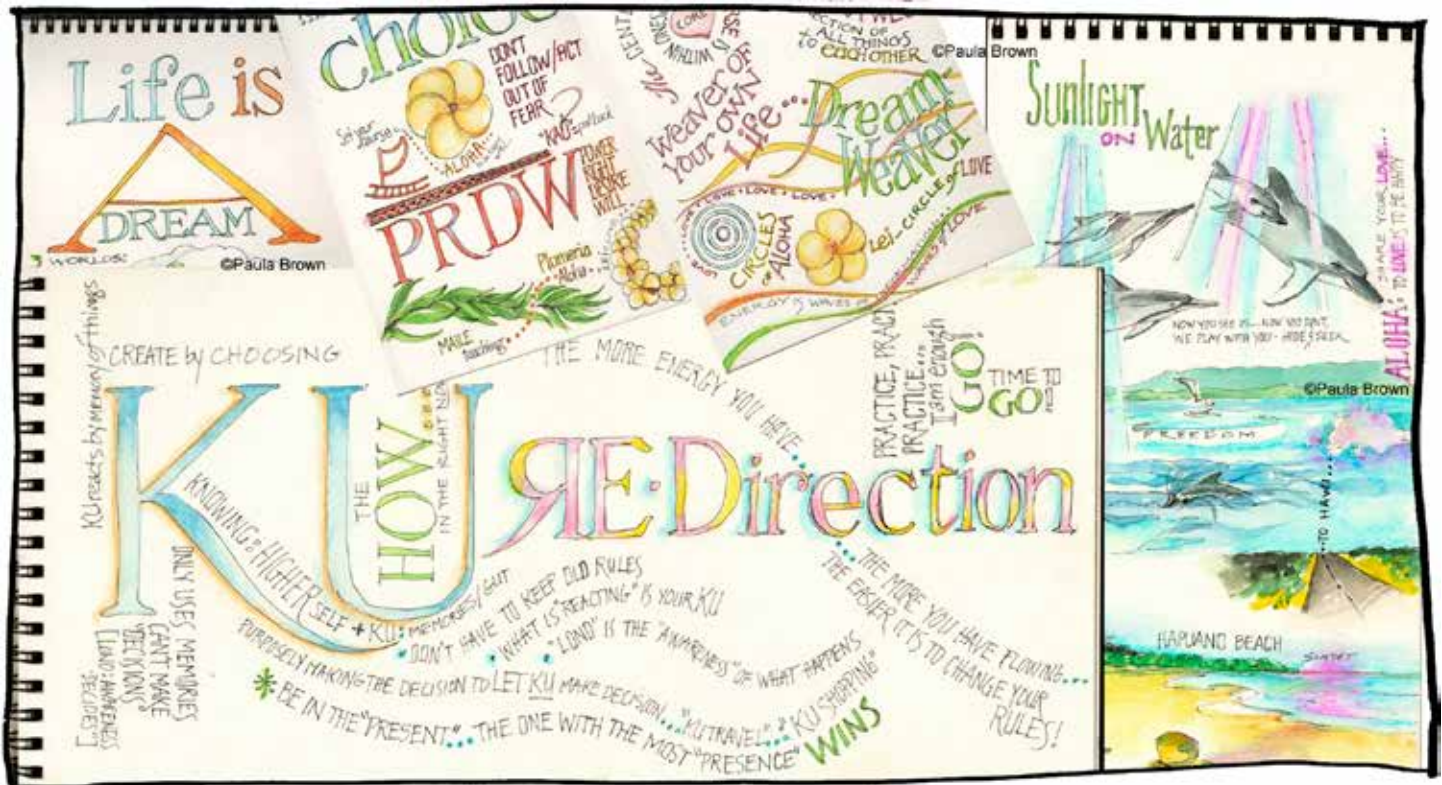 Life is
A
DREAM
WORLDS:
©Paula Brown
choice
DON'T
FOLLOW/ACT
OUT OF
FEAR
Set your
course
ALOHA
PRDW
POWER
RIGHT
DESIRE
WILL
Plumeria
Aloha
MAILE
teaching
CORE
IS WITHIN
The
ECTION OF
ALL THINGS
to EACH OTHER
©Paula Brown
WEAVER OF
YOUR OWN
Life...
Dream
Weaver
LOVE • LOVE • LOVE •
CIRCLES
OF ALOHA
LOVE
Lei - CIRCLE of LOVE
ENERGY is WAVES of
WAVES of LOVE
SUNLIGHT
ON Water
SHARE YOUR LOVE...
"ALOHA" TO LOVE IS TO BE HAPPY
NOW YOU SEE US... NOW YOU DON'T,
WE PLAY WITH YOU - HIDE & SEEK
©Paula Brown
FREEDOM
...TO HAWI...
HAPUANO BEACH
SUNSET
KU reacts by memory of things
CREATE by CHOOSING
KU
THE
HOW
IN THE RIGHT NOW
RE:Direction
THE MORE ENERGY YOU HAVE...
PRACTICE, PRACT
PRACTICE...
I am enough
I GO!
TIME TO
GO!
KNOWING = HIGHER SELF + KU: MEMORIES/GUT
• DON'T HAVE TO KEEP OLD RULES
• WHAT IS "REACTING" IS YOUR KU
• "LONO" IS THE "AWARENESS" OF WHAT HAPPENS
PURPOSELY MAKING THE DECISION TO LET KU MAKE DECISION... "KU TRAVEL" & "KU SHOPPING"
* BE IN THE "PRESENT"... THE ONE WITH THE MOST "PRESENCE" WINS
...THE MORE YOU HAVE FLOWING...
THE EASIER IT IS TO CHANGE YOUR
RULES!
ONLY USES MEMORIES
CAN'T MAKE
"DECISIONS"
[LONO: AWARENESS
DECIDES]